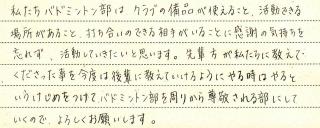 私たちバドミントン部は クラブの備品が使えること、活動できる
場所があること、打ち合いのできる相手がいることに感謝の気持ちを
忘れず、活動していきたいと思います。先輩方が私たちに教えて
くださった事を今度は後輩に教えていけるようにやる時はやると
いうけじめをつけてバドミントン部を周りから尊敬される部にして
いくので、よろしくお願いします。